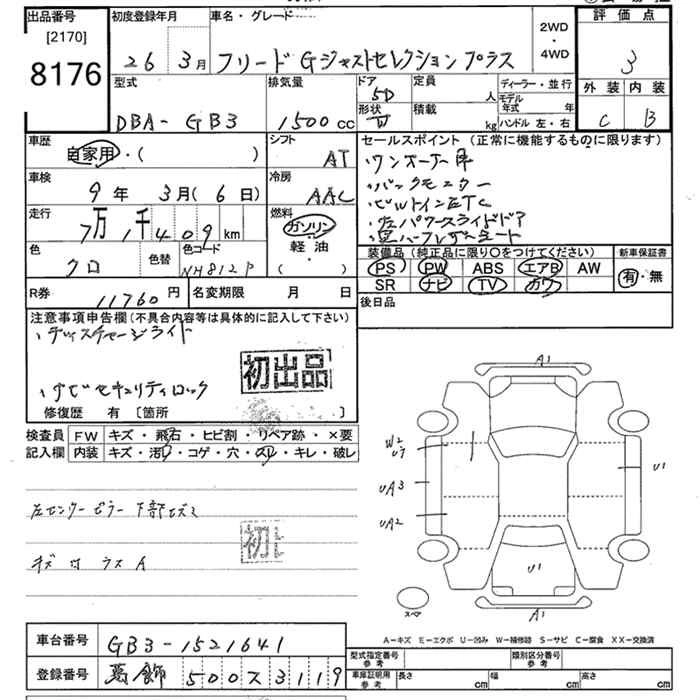 出品番号
[2170]
8176
初度登録年月
26 3月
車名・グレード
フリード Gジャストセレクションプラス
2WD
・
4WD
評価点
3
外装 内装
C B
型式
DBA-GB3
排気量
1500cc
ドア
5D
形状
定員
人
積載
kg
ディーラー・並行
モデル
年式 年
ハンドル 左・右
車歴
自家用・( )
シフト
AT
車検
9年 3月(6日)
冷房
AAC
走行
7万1千409km
燃料
ガソリン
軽油
( )
色
クロ
色替
色コード
NH812P
R券
11760円
名変期限 月 日
セールスポイント(正常に機能するものに限ります)
・ワンオーナー車
・バックモニター
・ビルトインETC
・左パワースライドドア
・黒ハーフレザーシート
装備品(純正品に限り○をつけてください)
PS PW ABS エアB AW
SR ナビ TV カワ
新車保証書
有・無
後日品
注意事項申告欄(不具合内容等は具体的に記入して下さい)
・ディスチャージライト
・ナビセキュリティロック
初出品
修復歴 有 [箇所 ]
検査員
記入欄
FW キズ・飛石・ヒビ割・リペア跡・×要
内装 キズ・汚れ・コゲ・穴・スレ・キレ・破レ
左センターピラー下部キズミ
初
キズ サ ラス A
A1
W2
U1
UA3
UA2
U1
U1
A1
スペア
A-キズ E-エクボ U-凹み W-補修跡 S-サビ C-腐食 XX-交換済
車台番号
GB3-1521641
登録番号
葛飾 500ス3119
型式指定番号
参考
類別区分番号
参考
車庫証明用
参考
長さ cm
幅 cm
高さ cm